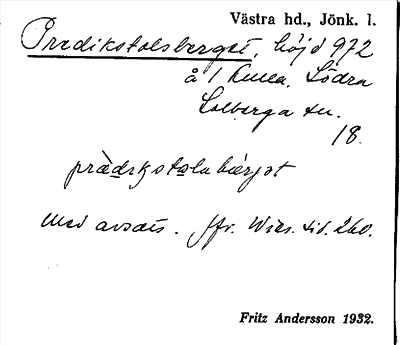 Västra hd., Jönk. l.
Predikstolsberget, höjd 972
å 1 Kulla, Södra
Solberga sn.
18.
prädikstolsbärjet
med avsats. Jfr. Wies. sid. 260.
Fritz Andersson 1932.